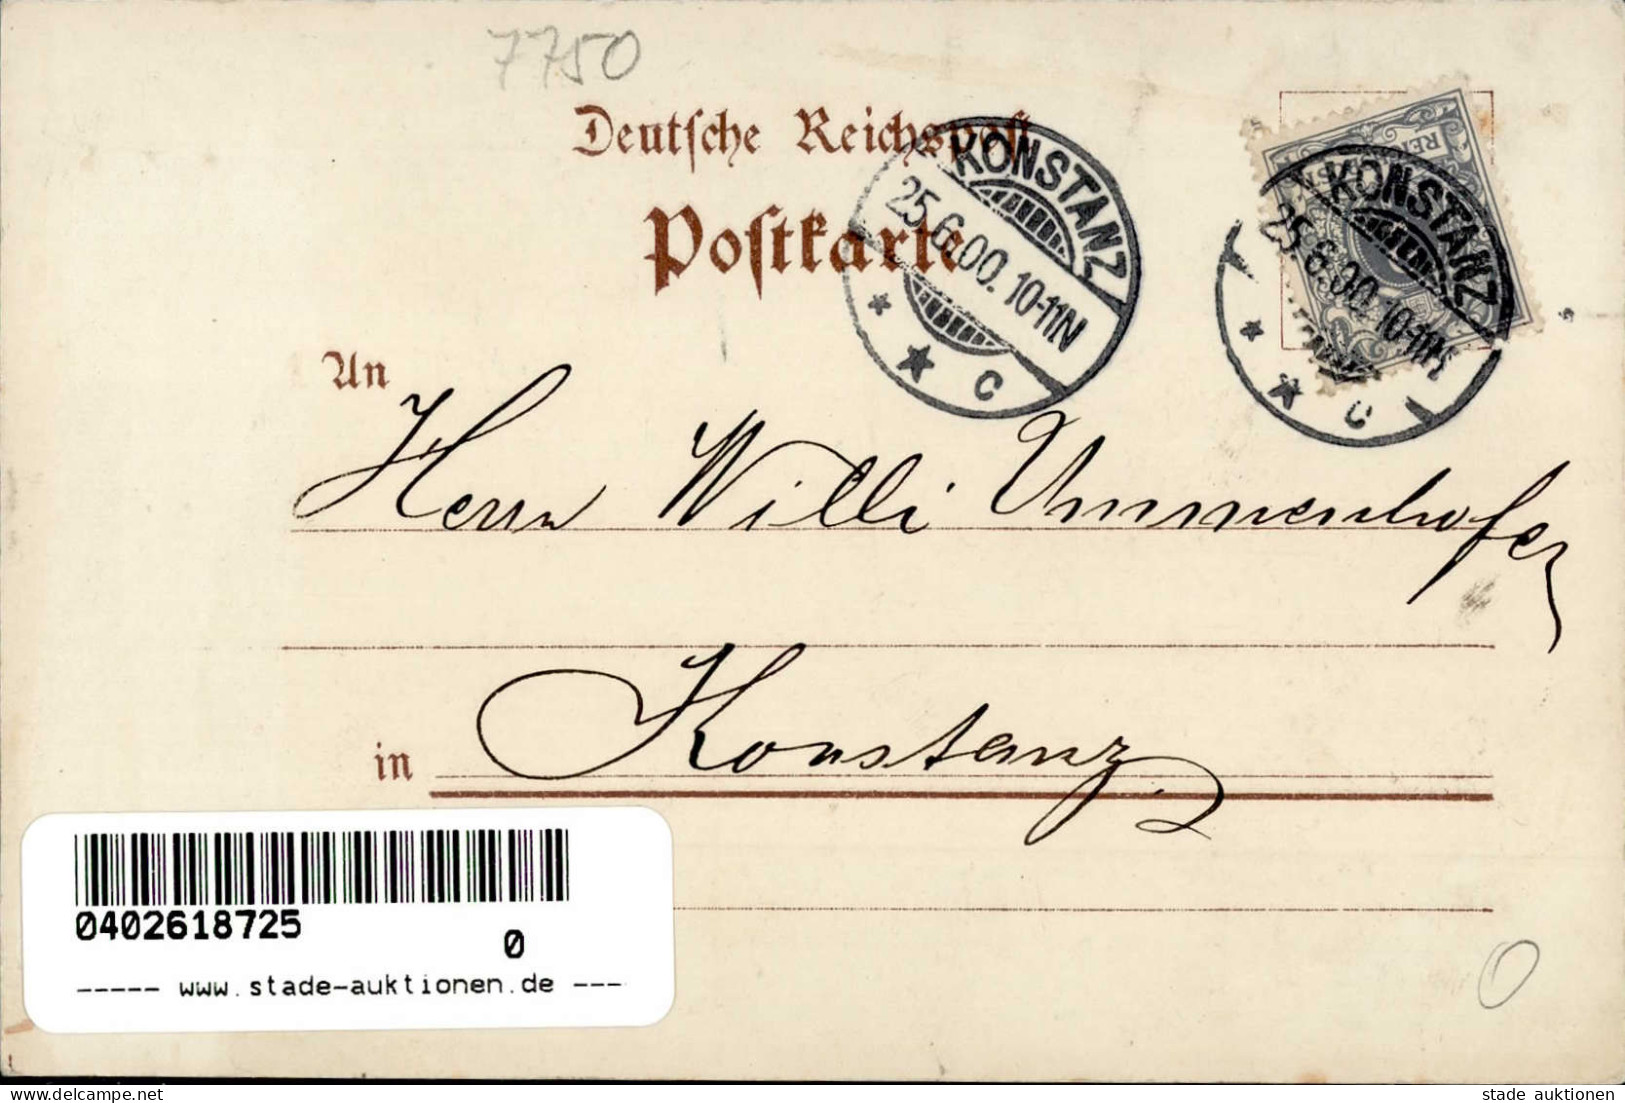 7750
Deutsche Reichspost
Postkarte
KONSTANZ
25.6.00.10-11N
* * c
REI
KONSTANZ
25.6.00.10-11N
* * c
An
Herrn Willi Ummenhofer
in Konstanz.
0402618725
0
----- www.stade-auktionen.de ---
0
stade auktionen